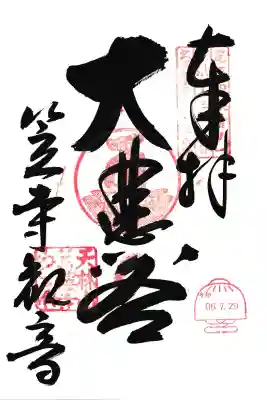 奉拝
大悲殿
笠寺観音
06.7.29